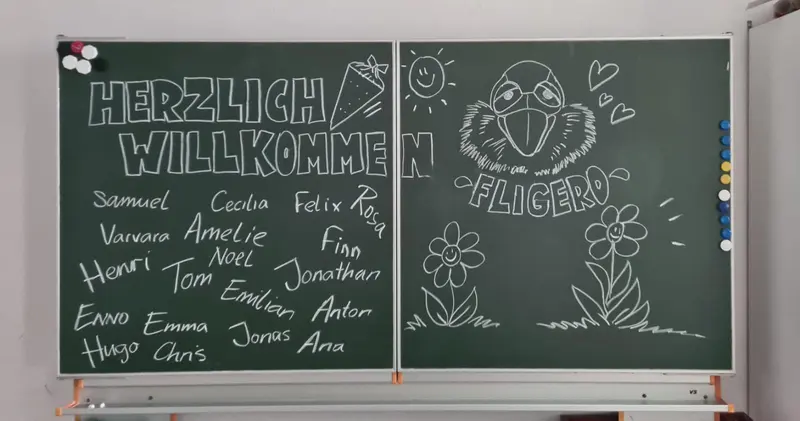 HERZLICH
WILLKOMMEN
Samuel Cecilia Felix Rosa
Varvara Amelie Finn
Henri Tom Noel Jonathan
Emilian
Enno Emma Jonas Anton
Hugo Chris Ana
FLIGERO